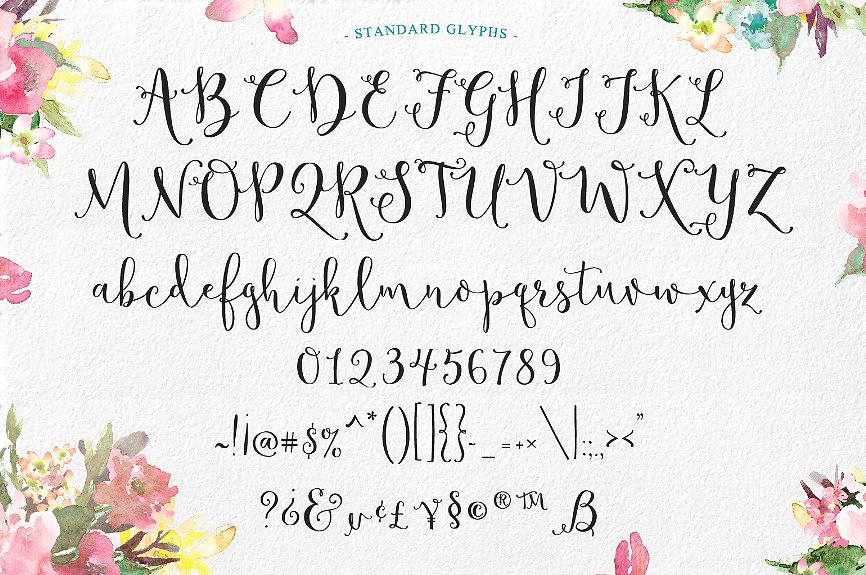 - STANDARD GLYPHS -
A B C D E F G H I J K L
M N O P Q R S T U V W X Y Z
a b c d e f g h i j k l m n o p q r s t u v w x y z
0 1 2 3 4 5 6 7 8 9
~ ! ¡ @ # $ % ^ * ( ) [ ] { } - _ = + × \ | : ; . , > < ”
? ¿ & µ ¢ £ ¥ § © ® ™ ß